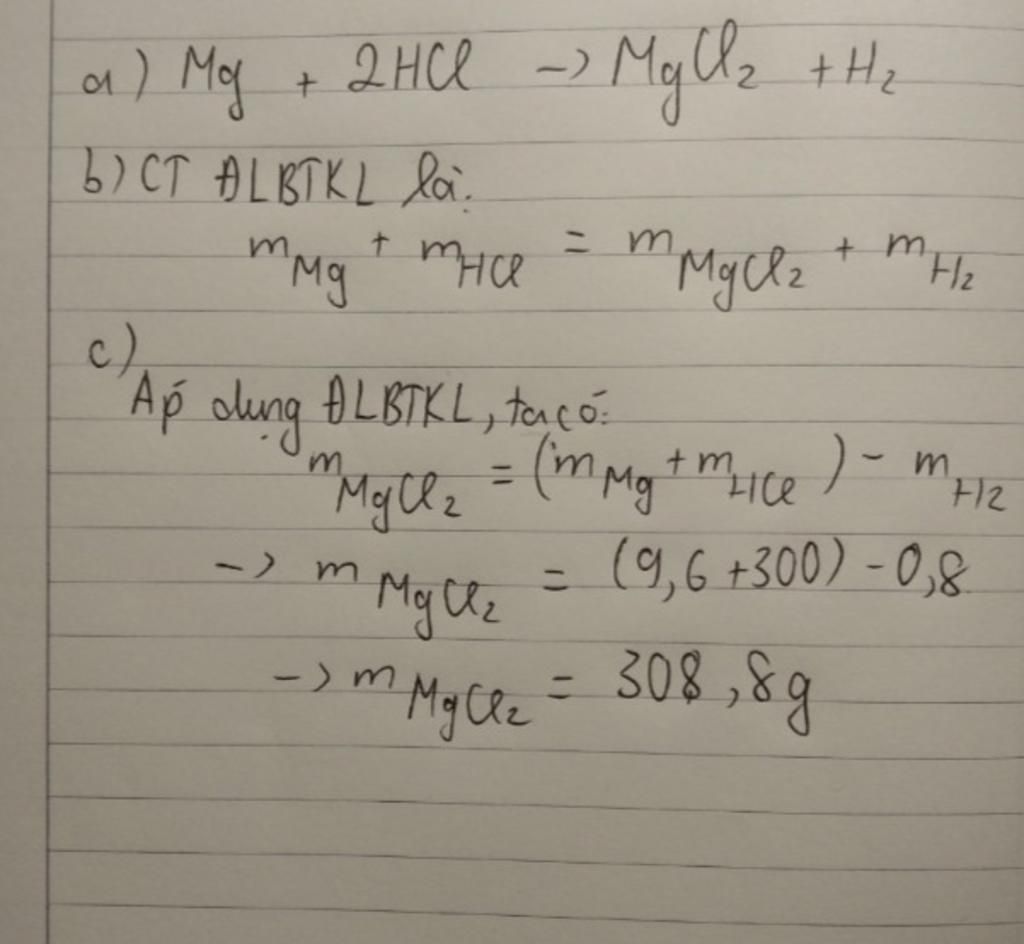 a) Mg + 2HCl -> MgCl₂ + H₂
b) CT ĐLBTKL là:
m Mg + m HCl = m MgCl₂ + m H₂
c)
Áp dụng ĐLBTKL, ta có:
m MgCl₂ = (m Mg + m HCl) - m H₂
-> m MgCl₂ = (9,6 + 300) - 0,8
-> m MgCl₂ = 308,8g